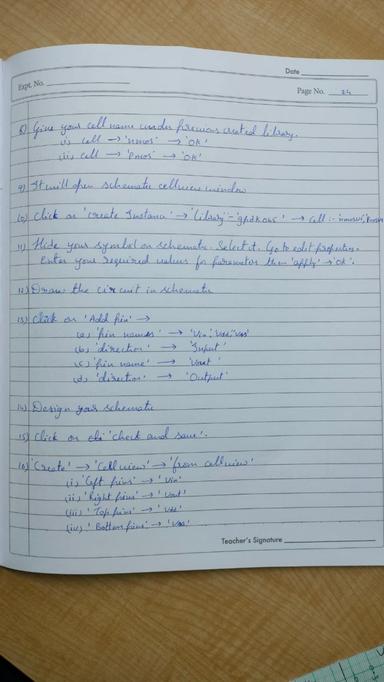 Date
Expt. No.
Page No. 24
8) Give your cell name under previous created library.
(i) cell → 'nmos' → 'OK'
(ii) cell → 'Pmos' → 'OK'
9) It will open schematic cellview window
10) Click on 'create Instance' → 'library' - 'gpdk045' → Cell :- 'nmos1v', Pmos1v
11) Hide your symbol on schematic. Select it. Go to edit properties.
Enter your required values for parameter then 'apply' → 'ok'.
12) Draw the circuit in schematic
13) Click on 'Add pin' →
(a) 'pin names' → 'Vin', 'Vdd', 'Vss'
(b) 'direction' → 'Input'
(c) 'pin name' → 'Vout'
(d) 'direction' → 'Output'
14) Design your schematic
15) Click on 'check and save'.
16) 'Create' → 'Cell view' → 'from cellview'
(i) 'Left pins' → 'Vin'
(ii) 'Right pins' → 'Vout'
(iii) 'Top pins' → 'Vdd'
(iv) 'Bottom pins' → 'Vss'
Teacher's Signature